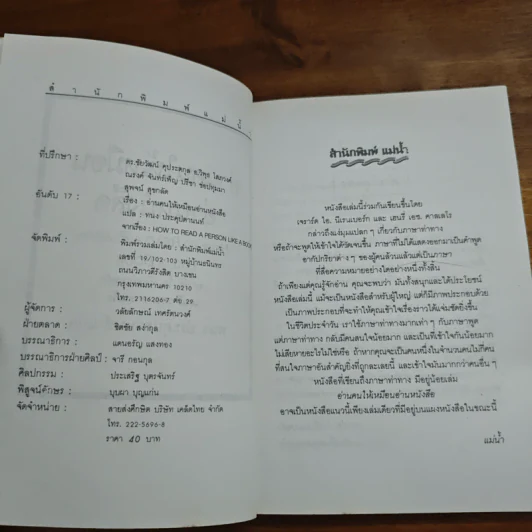 สำนักพิมพ์แม่น้ำ
ที่ปรึกษา : ดร.ชัยวัฒน์ คุประตกุล อ.วิทุร โสภวงศ์
ณรงค์ จันทร์เพ็ญ ปรีชา ช่อปทุมมา
สุพจน์ สุขกลัด
อันดับ 17 : เรื่อง : อ่านคนให้เหมือนอ่านหนังสือ
แปล : ทนง ประดุปตานนท์
จากเรื่อง : HOW TO READ A PERSON LIKE A BOOK
จัดพิมพ์ : พิมพ์รวมเล่มโดย : สำนักพิมพ์แม่น้ำ
เลขที่ 19/102-103 หมู่บ้านอนินทร
ถนนวิภาวดีรังสิต บางเขน
กรุงเทพมหานคร 10210
โทร. 2116206-7 ต่อ 29
ผู้จัดการ : วลัยลักษณ์ เทศรัตนวงศ์
ฝ่ายตลาด : ชิตชัย สง่ากุล
บรรณาธิการ : แดนอรัญ แสงทอง
บรรณาธิการฝ่ายศิลป์ : จารี กอนกุล
ศิลปกรรม : ประเสริฐ บุตรจันทร์
พิสูจน์อักษร : บุบผา บุญแก่น
จัดจำหน่าย : สายส่งศึกษิต บริษัท เคล็ดไทย จำกัด
โทร. 222-5696-8
ราคา 40 บาท
สำนักพิมพ์ แม่น้ำ
หนังสือเล่มนี้ร่วมกันเขียนขึ้นโดย
เจราร์ด ไอ. นีเรนเบอร์ก และ เฮนรี่ เอช. คาลเลโร
กล่าวถึงแง่มุมแปลก ๆ เกี่ยวกับภาษาท่าทาง
หรือถ้าจะพูดให้เข้าใจได้ชัดเจนขึ้น ภาษาที่ไม่ได้แสดงออกมาเป็นคำพูด
อากัปกิริยาต่าง ๆ ของผู้คนล้วนแล้วแต่เป็นภาษา
ที่สื่อความหมายอย่างใดอย่างหนึ่งทั้งสิ้น
ถ้าเพียงแต่คุณรู้จักอ่าน คุณจะพบว่า มันทั้งสนุกและได้ประโยชน์
หนังสือเล่มนี้ แม้จะเป็นหนังสือสำหรับผู้ใหญ่ แต่ก็มีภาพประกอบด้วย
เป็นภาพประกอบที่จะทำให้คุณเข้าใจเรื่องราวได้แจ่มชัดยิ่งขึ้น
ในชีวิตประจำวัน เราใช้ภาษาท่าทางมากเท่า ๆ กับภาษาพูด
แต่ภาษาท่าทาง กลับมีคนสนใจน้อยมาก และเป็นที่เข้าใจกันน้อยมาก
ไม่เสียหายอะไรไม่ใช่หรือ ถ้าหากคุณจะเป็นคนหนึ่งในจำนวนคนไม่กี่คน
ที่สนใจภาษาอันสำคัญยิ่งที่ถูกละเลยนี้ และเข้าใจมันมากกว่าคนอื่น ๆ
หนังสือที่เขียนถึงภาษาท่าทาง มีอยู่น้อยเล่ม
อ่านคนให้เหมือนอ่านหนังสือ
อาจเป็นหนังสือแนวนี้เพียงเล่มเดียวที่มีอยู่บนแผงหนังสือในขณะนี้
แม่น้ำ